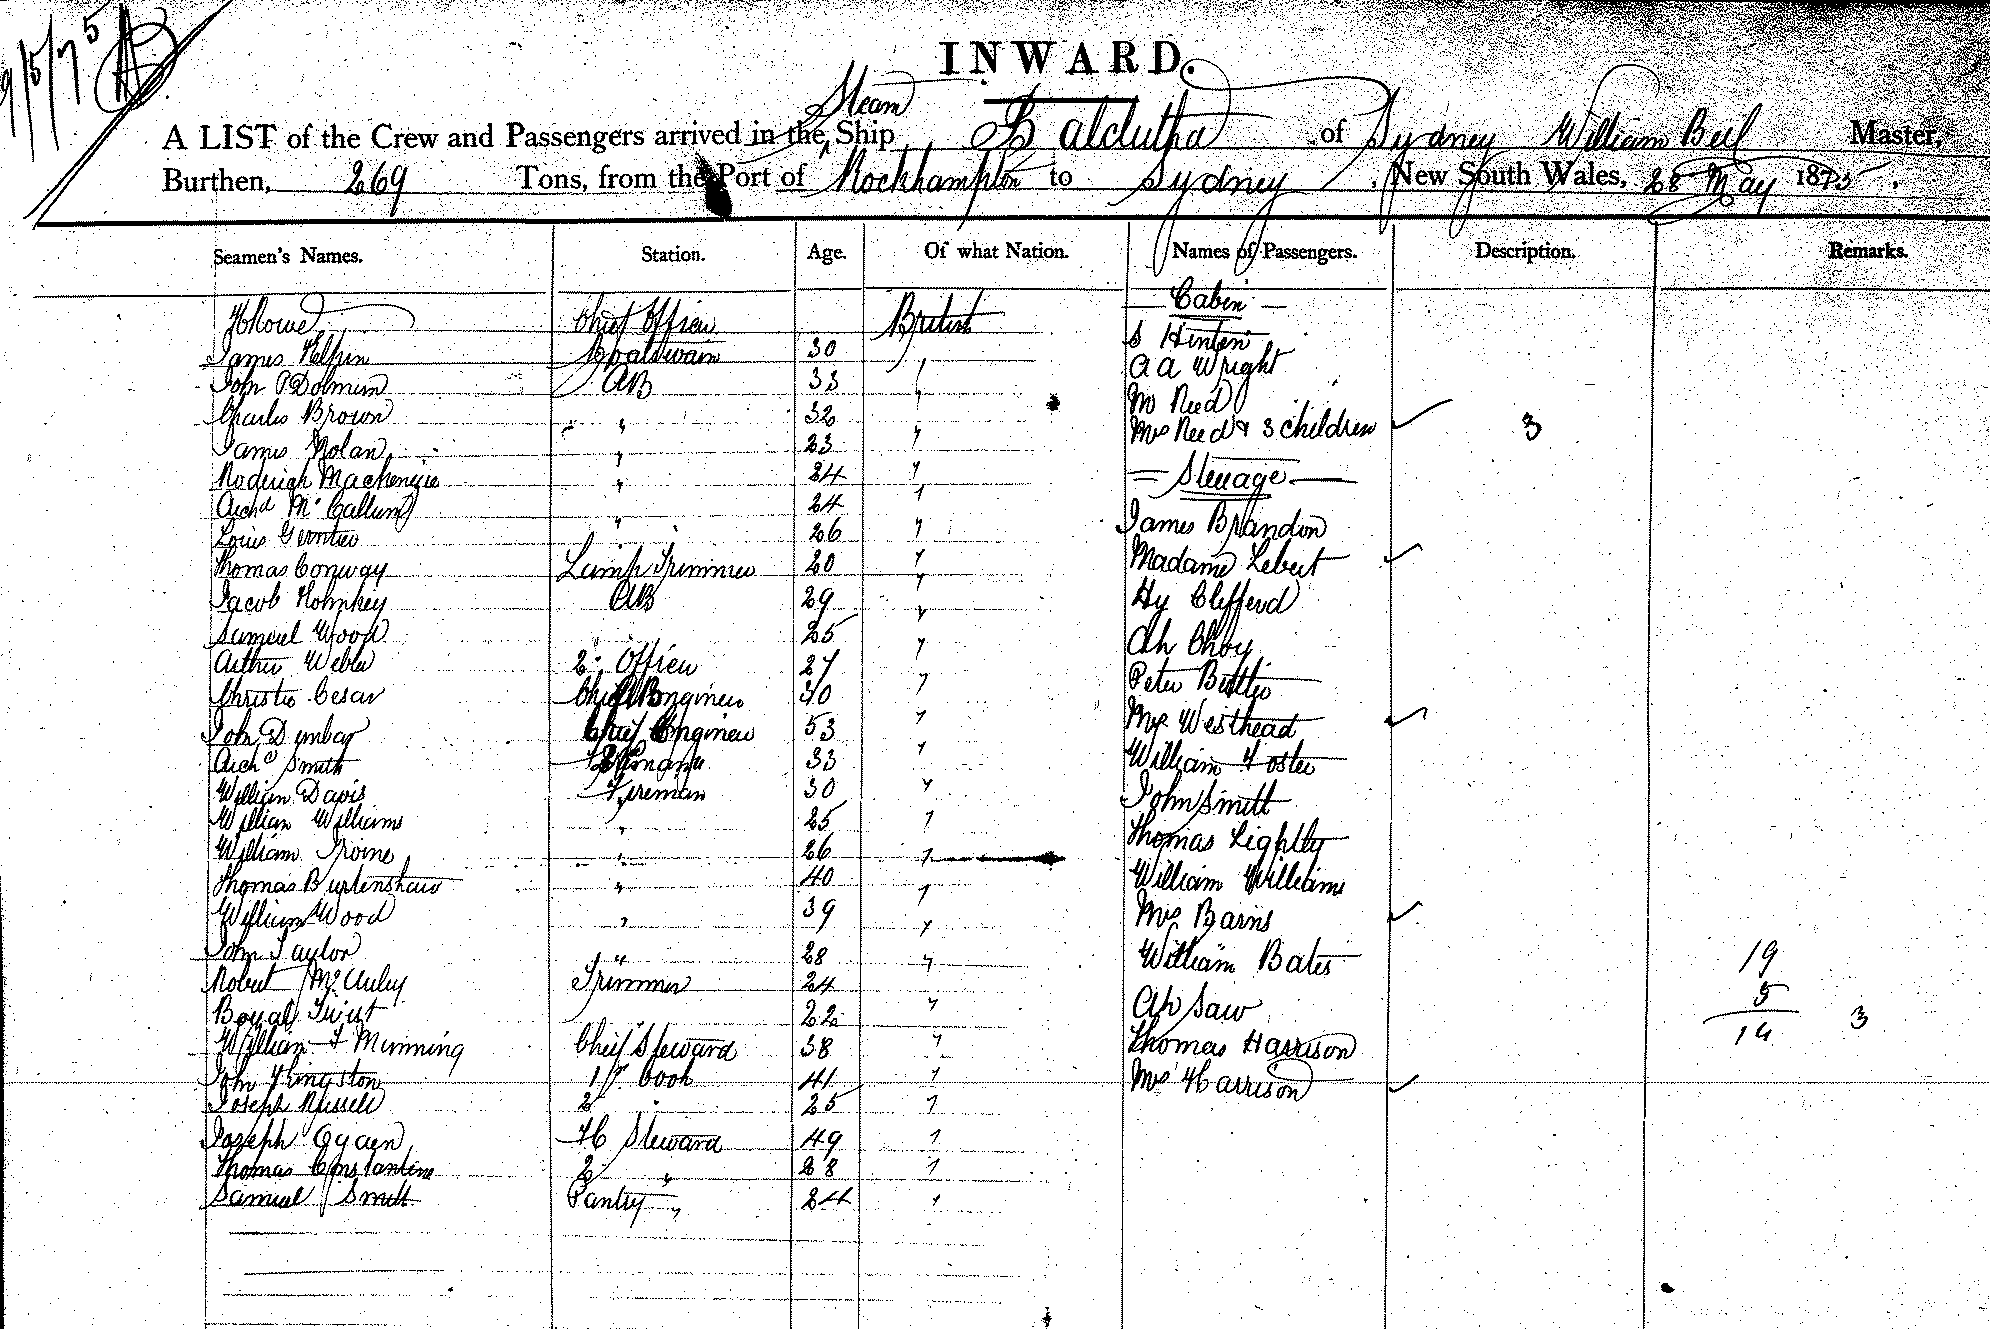 9/5/75
INWARD.
Steam
A LIST of the Crew and Passengers arrived in the Ship Balclutha of Sydney William Bell Master,
Burthen, 269 Tons, from the Port of Rockhampton to Sydney, New South Wales, 28 May 1875.
Seamen's Names. Station. Age. Of what Nation. Names of Passengers. Description. Remarks.
Cabin
H Rowe Chief Officer British
S Hinten
James Boatswain 30
A A Wright
John AB 33 "
M Reed
Charles Brown " 32 "
Mrs Reed & 3 children 3
James Nolan " 23 "
Roderich Mackenzie " 24 "
Steerage
Archd McCallum 24 "
James Brandon
Louis " 26 "
Madame Lebert
Thomas Conway Lamp Trimmer 20 "
Hy Clifferd
Jacob AB 29 "
Samuel Wood 25 "
Ah Choy
Arthur Webb 2 Officer 27 "
Peter
Christie Cesar Chief Engineer 30 "
Mrs Westhead
John Dunbar Chief Engineer 53 "
William Foster
Archd Smith 33 "
William Davis Fireman 30 "
John Smith
William Williams " 25 "
Thomas Lightly
William Irvine " 26 "
William Williams
Thomas Burtenshaw " 40 "
Mrs Barns
William Wood " 39 "
John Taylor " 28 "
William Bates 19
Robert McAuley Trimmer 24
5
Twist 22 "
Ah Saw
14 3
William F Munning Chief Steward 38 "
Thomas Harrison
John Kringston 1st Cook 41 "
Mrs Harrison
Joseph Russell 2 " 25 "
Joseph Steward 49 "
Thomas Constantine 2 " 28 "
Samuel Smith Pantry " 24 "